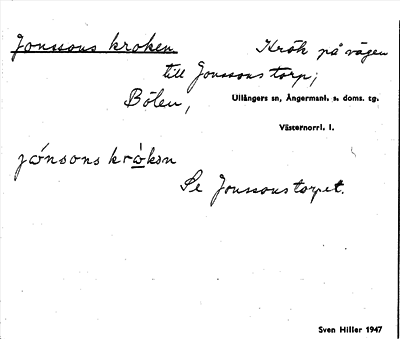 Jonssons kroken Krök på vägen
till Jonssons torp;
Bölen, Ullångers sn, Ångermanl. s. doms. tg.
Västernorrl. l.
jónsons krò̱kən
Se Jonssonstorpet.
Sven Hiller 1947